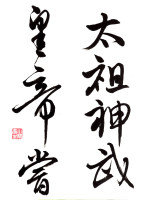 太祖神武
皇帝嘗